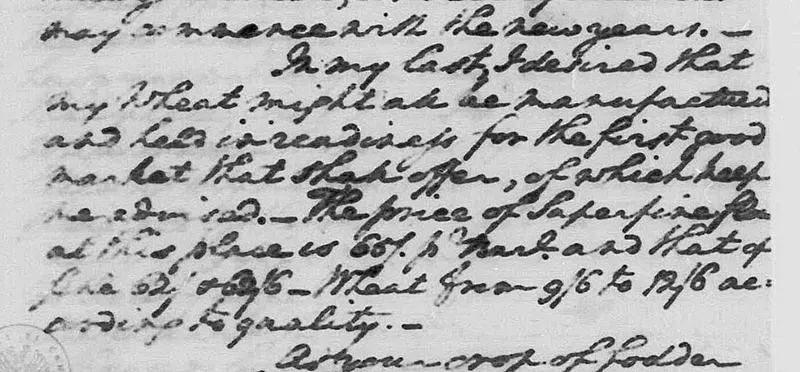 may commence with the new years. —
In my last, I desired that
my Wheat might all be manufactured
and held in readiness for the first good
market that shall offer, of which keep
me advised. — The price of Superfine
at this place is pr. Barl. and that of
fine — Wheat from 9/6 to 12/6 ac-
cording to quality. —
As your crop of fodder